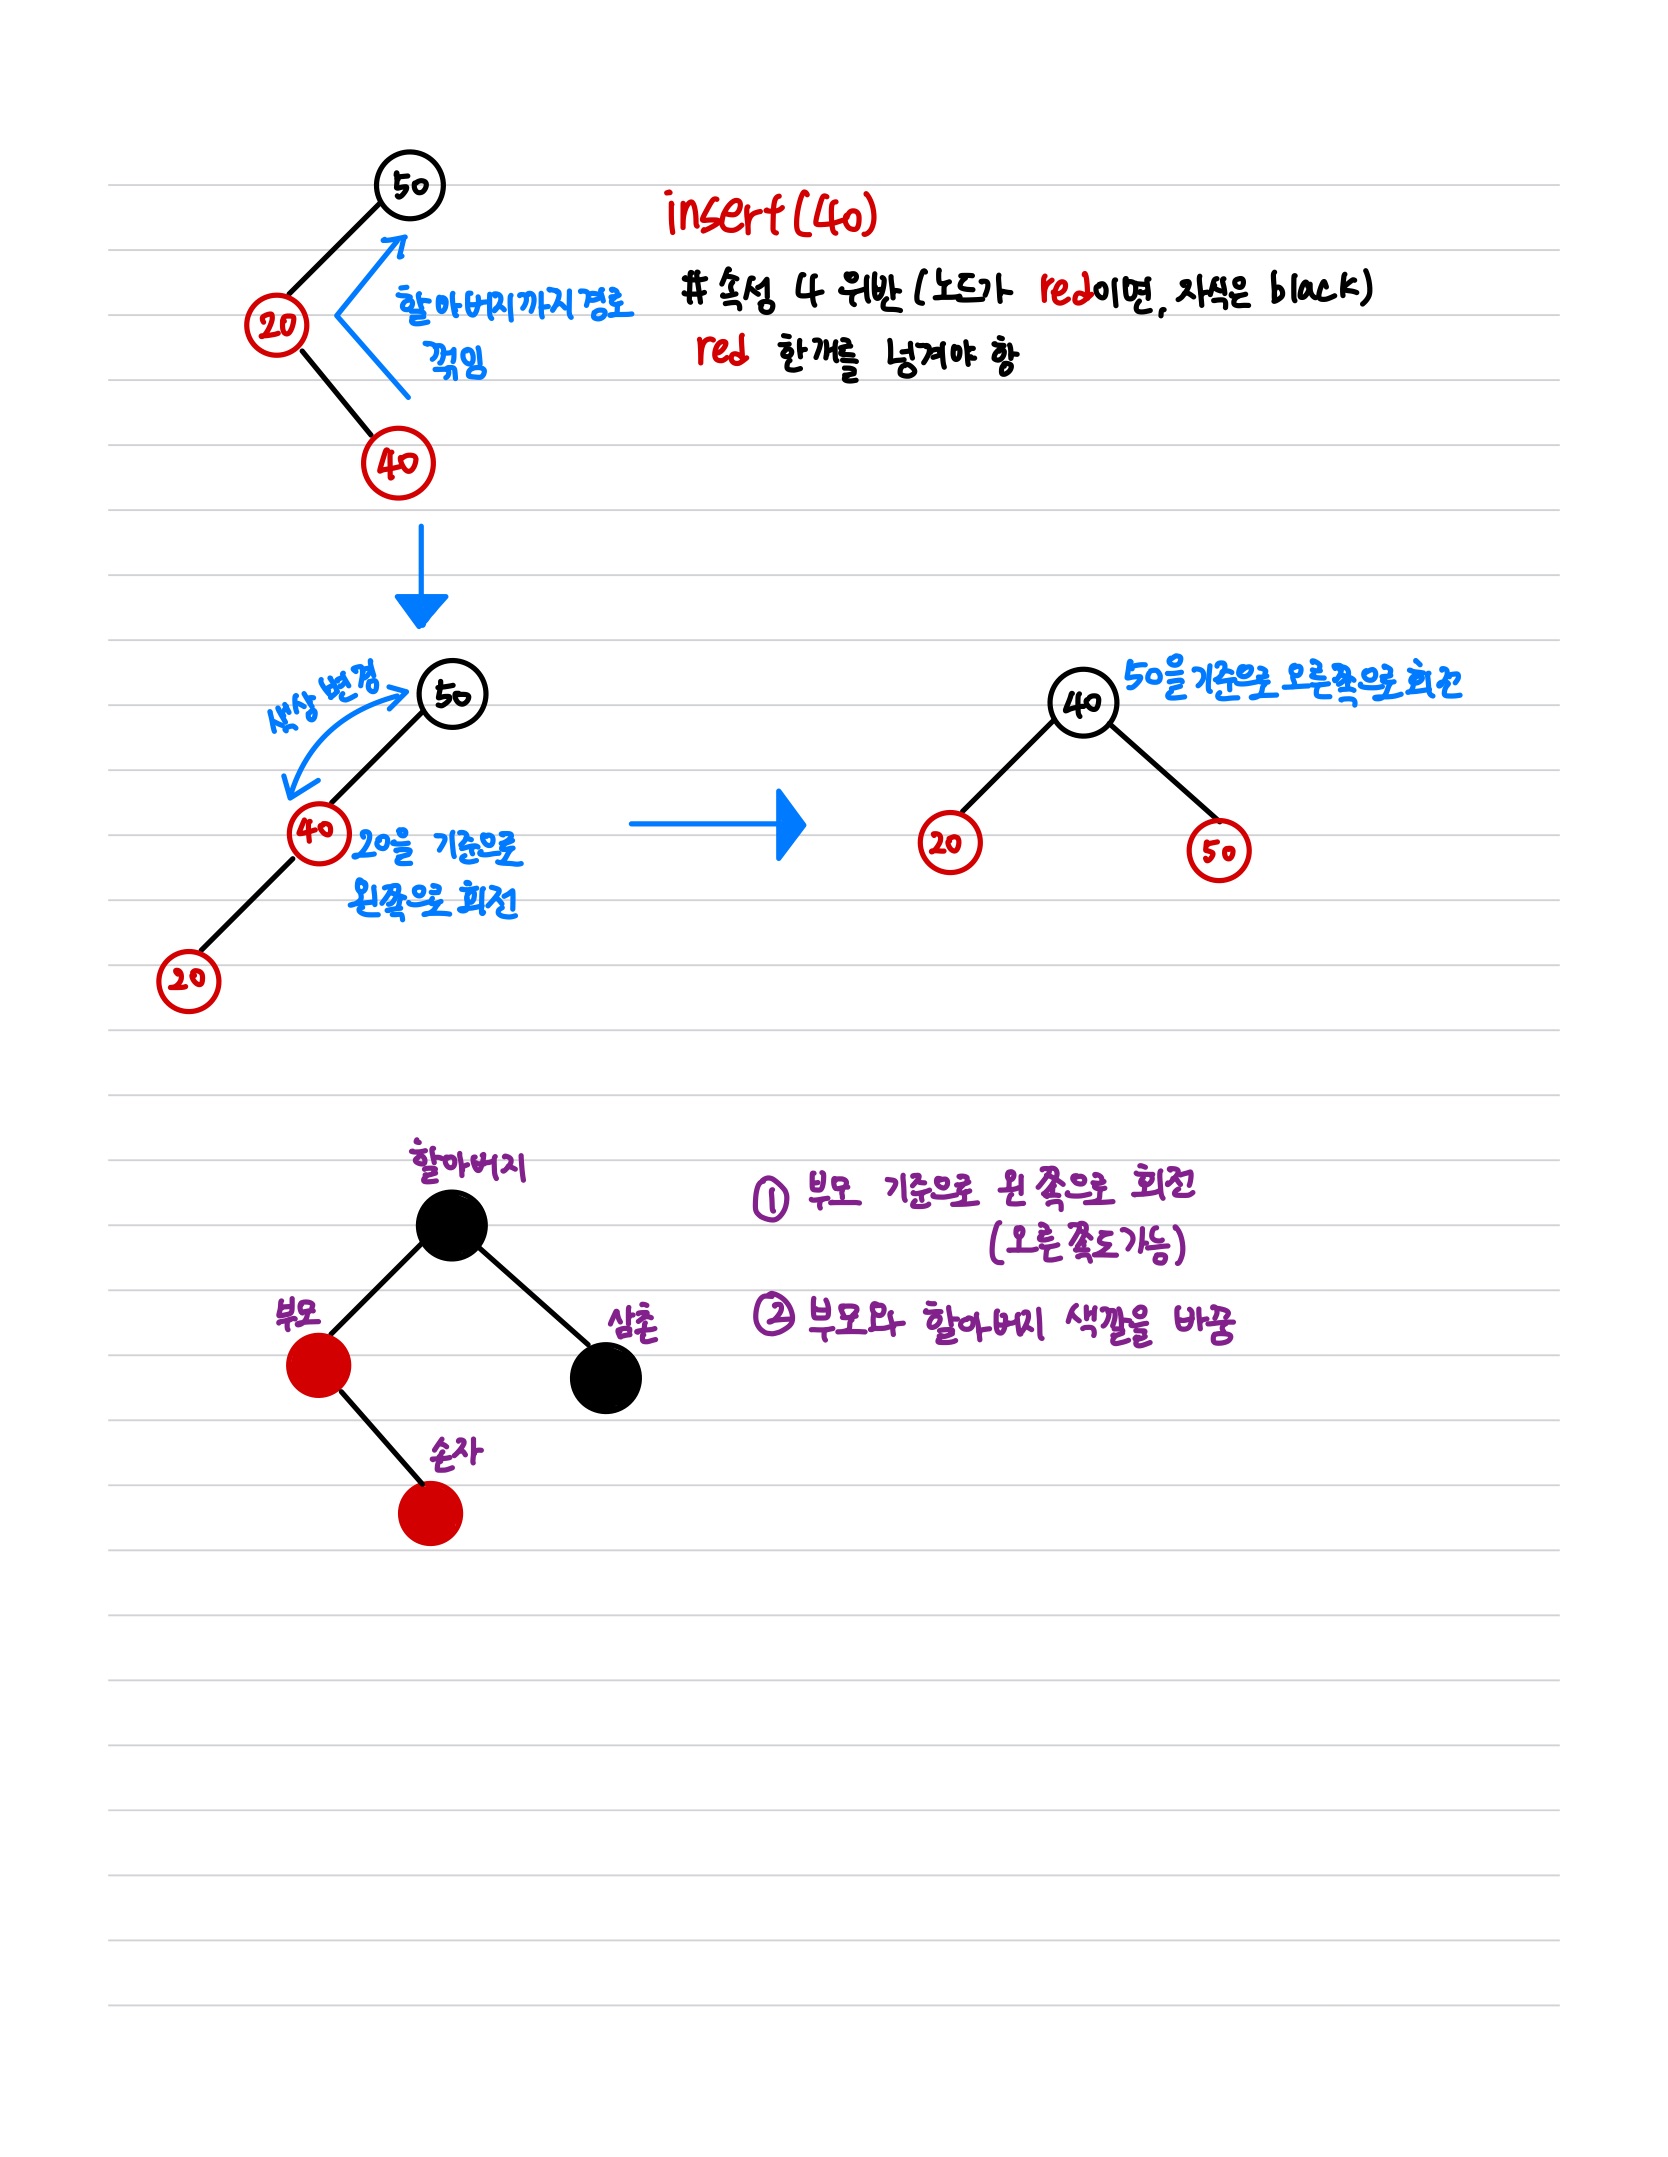 50
insert(40)
20
할아버지까지경로
꺾임
# 속성 4 위반 (노드가 red이면, 자식은 black)
red 한개를 넘겨야 함
40
색상 변경
50
40
20을 기준으로
왼쪽으로 회전
20
40
50을기준으로 오른쪽으로 회전
20
50
할아버지
부모
삼촌
손자
① 부모 기준으로 왼쪽으로 회전
(오른쪽도가능)
② 부모와 할아버지 색깔을 바꿈